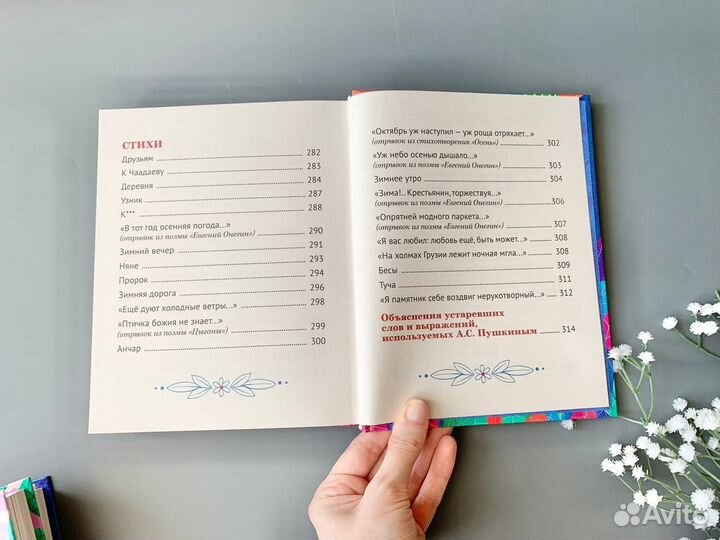 СТИХИ
Друзьям 282
К Чаадаеву 283
Деревня 284
Узник 287
К*** 288
«В тот год осенняя погода...»
(отрывок из поэмы «Евгений Онегин») 290
Зимний вечер 291
Няне 293
Пророк 294
Зимняя дорога 296
«Ещё дуют холодные ветры...» 298
«Птичка божия не знает...»
(отрывок из поэмы «Цыганы») 299
Анчар 300
«Октябрь уж наступил — уж роща отряхает...»
(отрывок из стихотворения «Осень») 302
«Уж небо осенью дышало...»
(отрывок из поэмы «Евгений Онегин») 303
Зимнее утро 304
«Зима!.. Крестьянин, торжествуя...»
(отрывок из поэмы «Евгений Онегин») 306
«Опрятней модного паркета...»
(отрывок из поэмы «Евгений Онегин») 307
«Я вас любил: любовь ещё, быть может...» 308
«На холмах Грузии лежит ночная мгла...» 308
Бесы 309
Туча 311
«Я памятник себе воздвиг нерукотворный...» 312
Объяснения устаревших
слов и выражений,
используемых А.С. Пушкиным 314
Avito